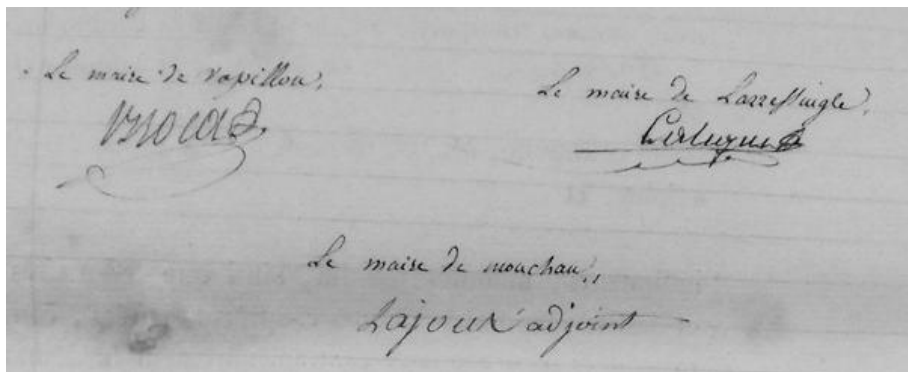 Le maire de vapillou,
Brocas
Le maire de Larressingle,
Le maire de mouchan,
Lajoux adjoint